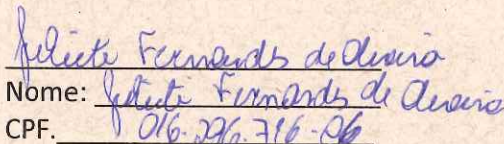 Fernandes de Oliveira
Nome: Fernandes de Oliveira
CPF. 016.296.716-06